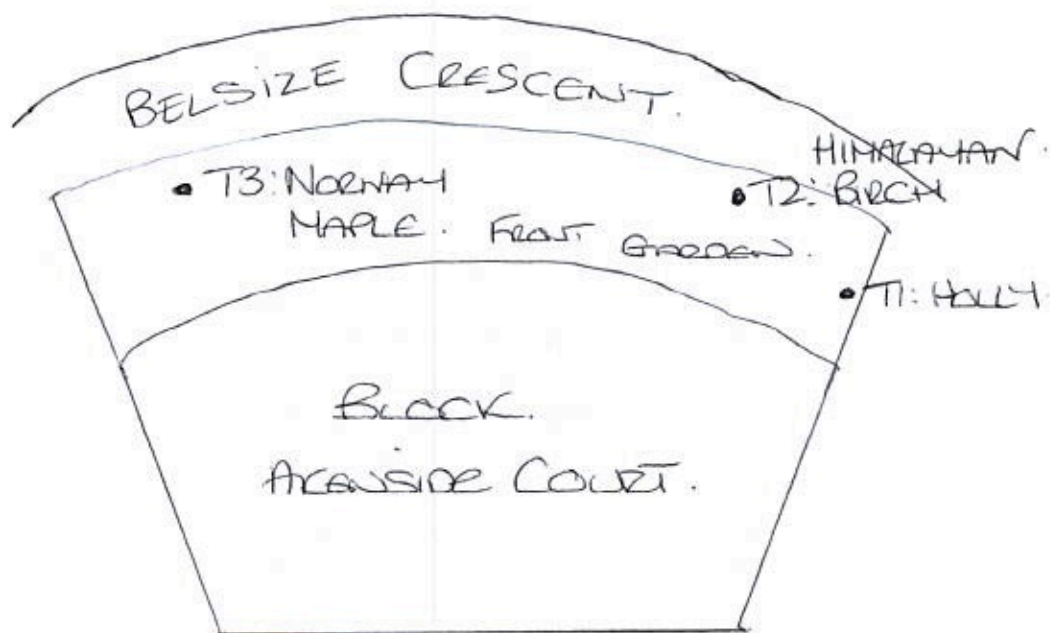 BELSIZE CRESCENT.
HIMALAYAN.
T3: NORWAY
T2: BIRCH
MAPLE. FRONT GARDEN.
T1: HOLLY.
BLOCK.
AKENSIDE COURT.